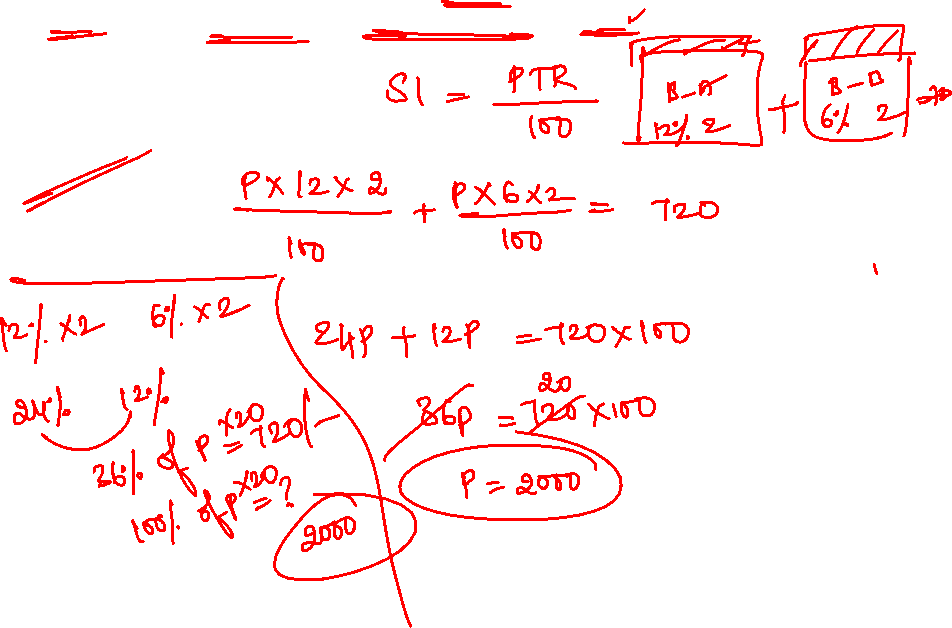 SI = PTR / 100
B-A
12% 2
+
B-B
6% 2
P×12×2 / 100 + P×6×2 / 100 = 720
12% ×2 6% ×2
24% 12%
36% of P = 720/- ×20
100% of P = ? ×20
2000
24P + 12P = 720×100
36P = 720×100
20
P = 2000